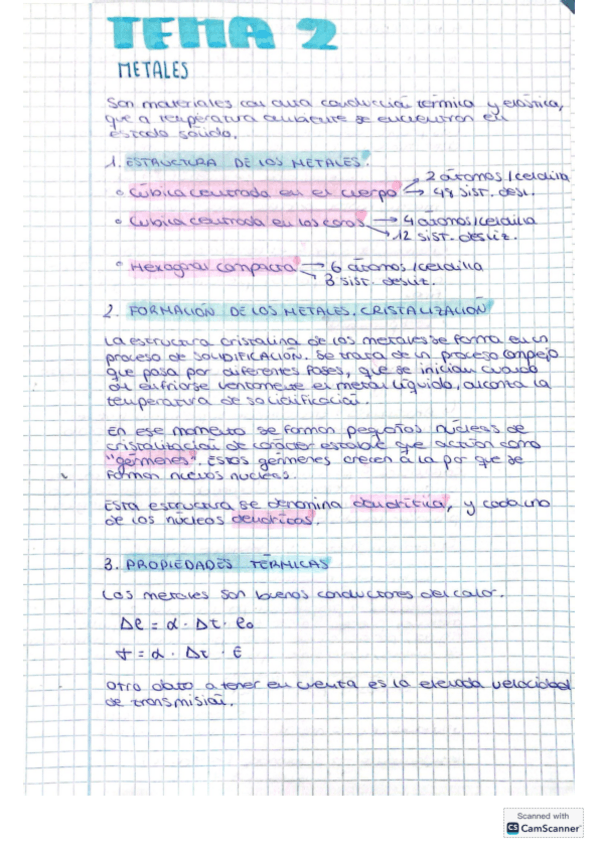 TEMA 2
METALES
Son materiales con alta conducción térmica y elástica,
que a temperatura ambiente se encuentran en
estado sólido.
1. ESTRUCTURA DE LOS METALES.
° Cúbica centrada en el cuerpo → 2 átomos/celdilla
→ 48 sist. desl.
° Cúbica centrada en las caras → 4 átomos/celdilla
→ 12 sist. desliz.
° Hexagonal compacta → 6 átomos/celdilla
→ 3 sist. desliz.
2. FORMACIÓN DE LOS METALES. CRISTALIZACIÓN
La estructura cristalina de los metales se forma en un
proceso de SOLIDIFICACIÓN. Se trata de un proceso complejo
que pasa por diferentes fases, que se inician cuando
al enfriarse lentamente el metal líquido, alcanza la
temperatura de solidificación.
En ese momento se forman pequeños núcleos de
cristalización de carácter estable que actúan como
"gérmenes". Estos gérmenes crecen a la par que se
forman nuevos núcleos.
Esta estructura se denomina dendrítica, y cada uno
de los núcleos dendritas.
3. PROPIEDADES TÉRMICAS
Los metales son buenos conductores del calor.
Δl = α · Δt · l₀
= α · Δt · E
Otro dato a tener en cuenta es la elevada velocidad
de transmisión.
Scanned with
CS CamScanner